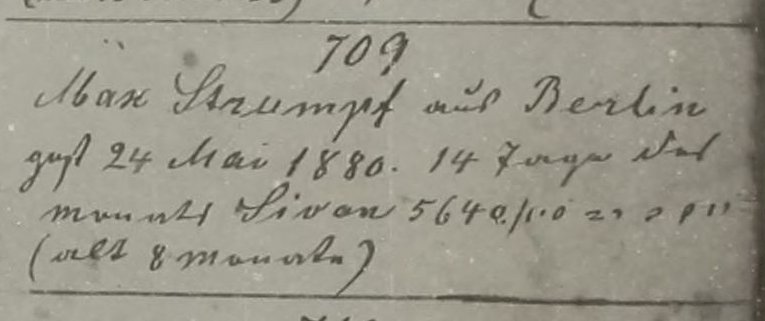 709
Max Strumpf aus Berlin
gest 24 Mai 1880. 14 Tage des
monats Sivan 5640
(alt 8 monate)